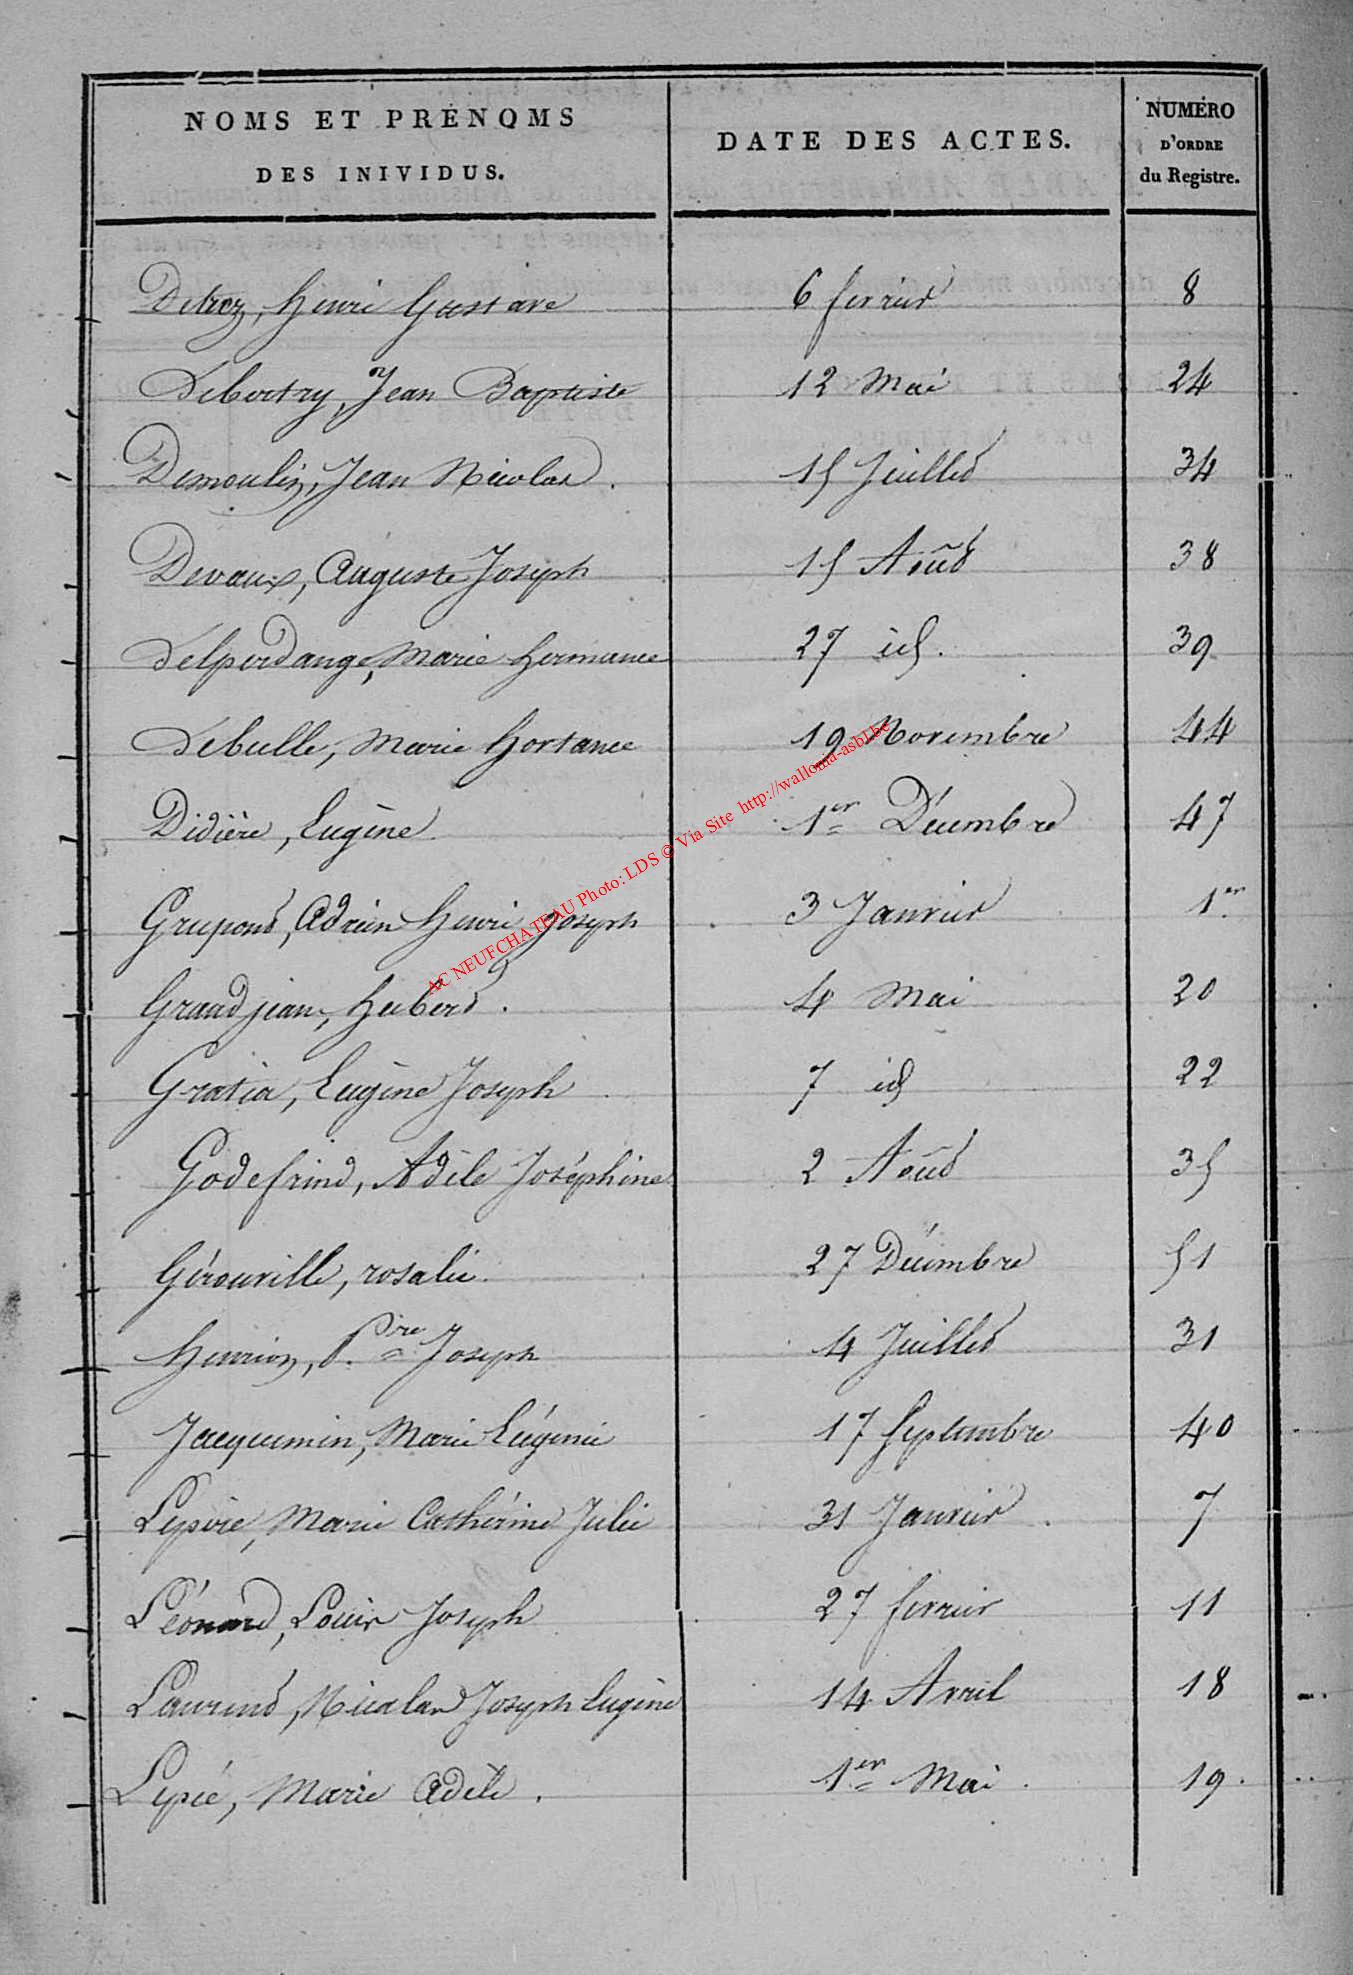 NOMS ET PRÉNOMS DES INIVIDUS. DATE DES ACTES. NUMÉRO D'ORDRE du Registre.
Detroz, Henri Gustave 6 fevrier 8
Debortry, Jean Baptiste 12 Mai 24
Demoulin, Jean Nicolas. 15 Juillet 34
Devaux, Auguste Joseph 15 Août 38
Delperdange, Marie Hermance 27 id. 39
Debulle, Marie Hortance 19 Novembre 44
Didière, Eugène 1er Décembre 47
Grupont, Adrien Henri Joseph 3 Janvier 1er
Grandjean, Hubert. 4 Mai 20
Gratia, Eugène Joseph 7 id 22
Godefrind, Adèle Joséphine 2 Août 35
Gérouville, rosalie. 27 Décembre 51
Henrion, P.re Joseph 4 Juillet 31
Jacquemin, Marie Eugénie 17 Septembre 40
Lepire, Marie Cathérine Julie 31 Janvier 7
Léonard, Louis Joseph 27 fevrier 11
Laurent, Nicolas Joseph Eugène 14 Avril 18
Lepié, Marie Adèle. 1er Mai 19.
AC NEUFCHATEAU Photo: LDS © Via Site http://wallonia-asbl.be